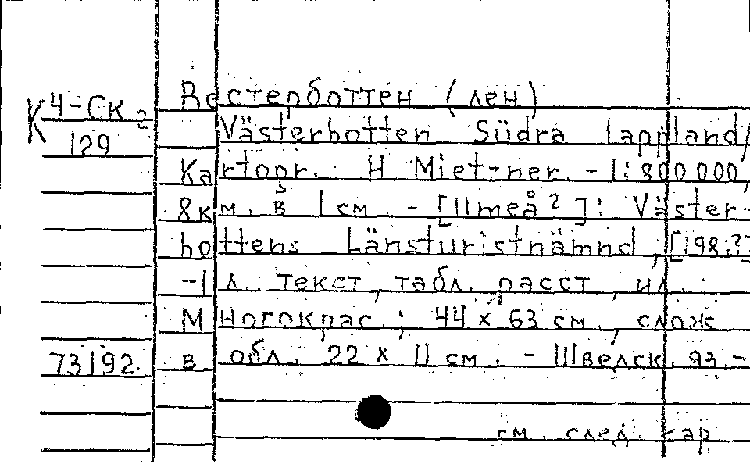 К 4-Ск 2
129
Вестерботтен (лен)
Västerbotten Südra Lappland/
Kartogr. H Mietzner. - 1:800 000,
8км. в 1см. - [Umeå?]: Väster-
bottens Länsturistnämnd, [198.?]
-1 л. текст, табл. расст, ил.
Многокрас.; 44 x 63 см., слож
73192. в обл. 22 x 11 см. - Шведск. яз.-
см. след. кар